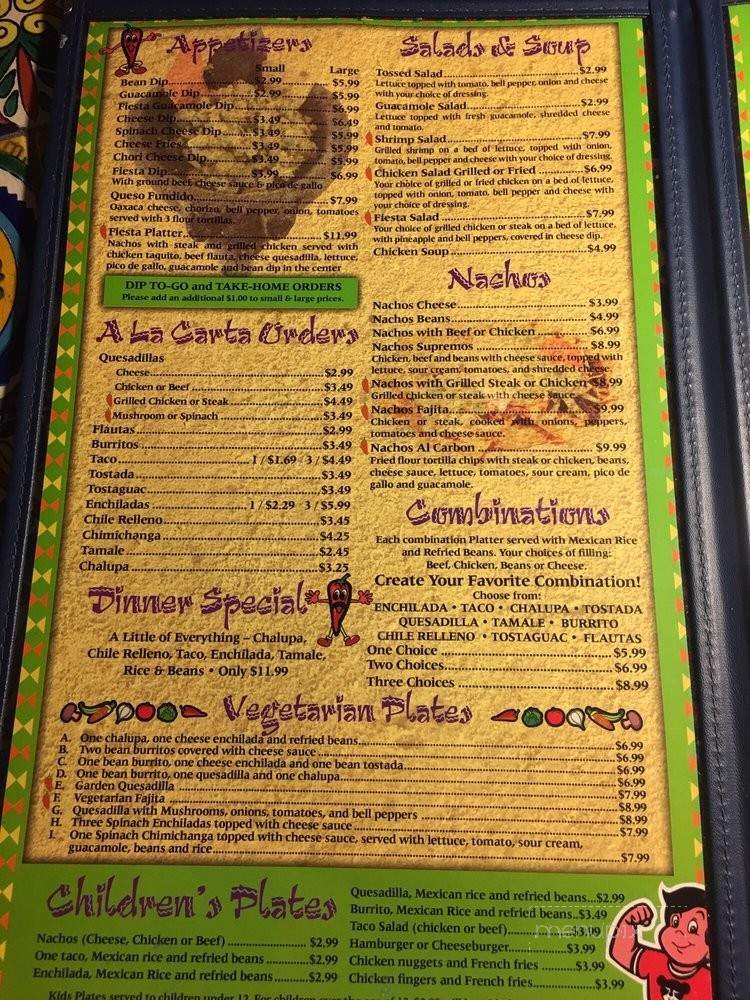 Appetizers
Small Large
Bean Dip $2.99 $5.99
Guacamole Dip $2.99 $5.99
Fiesta Guacamole Dip $6.99
Cheese Dip $3.49 $6.49
Spinach Cheese Dip $3.49 $5.99
Cheese Fries $3.49 $5.99
Chori Cheese Dip $3.49 $5.99
Fiesta Dip $3.99 $6.99
With ground beef, cheese sauce & pico de gallo
Queso Fundido $7.99
Oaxaca cheese, chorizo, bell pepper, onion, tomatoes
served with 3 flour tortillas.
Fiesta Platter $11.99
Nachos with steak and grilled chicken served with
chicken taquito, beef flauta, cheese quesadilla, lettuce,
pico de gallo, guacamole and bean dip in the center
DIP TO-GO and TAKE-HOME ORDERS
Please add an additional $1.00 to small & large prices.
A La Carta Orders
Quesadillas
Cheese $2.99
Chicken or Beef $3.49
Grilled Chicken or Steak $4.49
Mushroom or Spinach $3.49
Flautas $2.99
Burritos $3.49
Taco 1 / $1.69 - 3 / $4.49
Tostada $3.49
Tostaguac $3.49
Enchiladas 1 / $2.29 3 / $5.99
Chile Relleno $3.45
Chimichanga $4.25
Tamale $2.45
Chalupa $3.25
Dinner Special
A Little of Everything – Chalupa,
Chile Relleno, Taco, Enchilada, Tamale,
Rice & Beans • Only $11.99
Salads & Soup
Tossed Salad $2.99
Lettuce topped with tomato, bell pepper, onion and cheese
with your choice of dressing.
Guacamole Salad $2.99
Lettuce topped with fresh guacamole, shredded cheese
and tomato.
Shrimp Salad $7.99
Grilled shrimp on a bed of lettuce, topped with onion,
tomato, bell pepper and cheese with your choice of dressing.
Chicken Salad Grilled or Fried $6.99
Your choice of grilled or fried chicken on a bed of lettuce,
topped with onion, tomato, bell pepper and cheese with
your choice of dressing.
Fiesta Salad $7.99
Your choice of grilled chicken or steak on a bed of lettuce,
with pineapple and bell peppers, covered in cheese dip.
Chicken Soup $4.99
Nachos
Nachos Cheese $3.99
Nachos Beans $4.99
Nachos with Beef or Chicken $6.99
Nachos Supremos $8.99
Chicken, beef and beans with cheese sauce, topped with
lettuce, sour cream, tomatoes, and shredded cheese.
Nachos with Grilled Steak or Chicken $8.99
Grilled chicken or steak with cheese sauce
Nachos Fajita $9.99
Chicken or steak, cooked with onions, peppers,
tomatoes and cheese sauce.
Nachos Al Carbon $9.99
Fried flour tortilla chips with steak or chicken, beans,
cheese sauce, lettuce, tomatoes, sour cream, pico de
gallo and guacamole.
Combinations
Each combination Platter served with Mexican Rice
and Refried Beans. Your choices of filling:
Beef, Chicken, Beans or Cheese.
Create Your Favorite Combination!
Choose from:
ENCHILADA • TACO • CHALUPA • TOSTADA
QUESADILLA • TAMALE • BURRITO
CHILE RELLENO • TOSTAGUAC • FLAUTAS
One Choice $5.99
Two Choices $6.99
Three Choices $8.99
Vegetarian Plates
A. One chalupa, one cheese enchilada and refried beans $6.99
B. Two bean burritos covered with cheese sauce $6.99
C. One bean burrito, one cheese enchilada and one bean tostada $6.99
D. One bean burrito, one quesadilla and one chalupa $6.99
E. Garden Quesadilla $7.99
F. Vegetarian Fajita $8.99
G. Quesadilla with Mushrooms, onions, tomatoes, and bell peppers $8.99
H. Three Spinach Enchiladas topped with cheese sauce $7.99
I. One Spinach Chimichanga topped with cheese sauce, served with lettuce, tomato, sour cream,
guacamole, beans and rice $7.99
Children's Plates
Nachos (Cheese, Chicken or Beef) $2.99
One taco, Mexican rice and refried beans $2.99
Enchilada, Mexican Rice and refried beans $2.99
Quesadilla, Mexican rice and refried beans $2.99
Burrito, Mexican Rice and refried beans $3.49
Taco Salad (chicken or beef) $3.99
Hamburger or Cheeseburger $3.99
Chicken nuggets and French fries $3.99
Chicken fingers and French fries $3.99
Kids Plates served to children under 12. For children